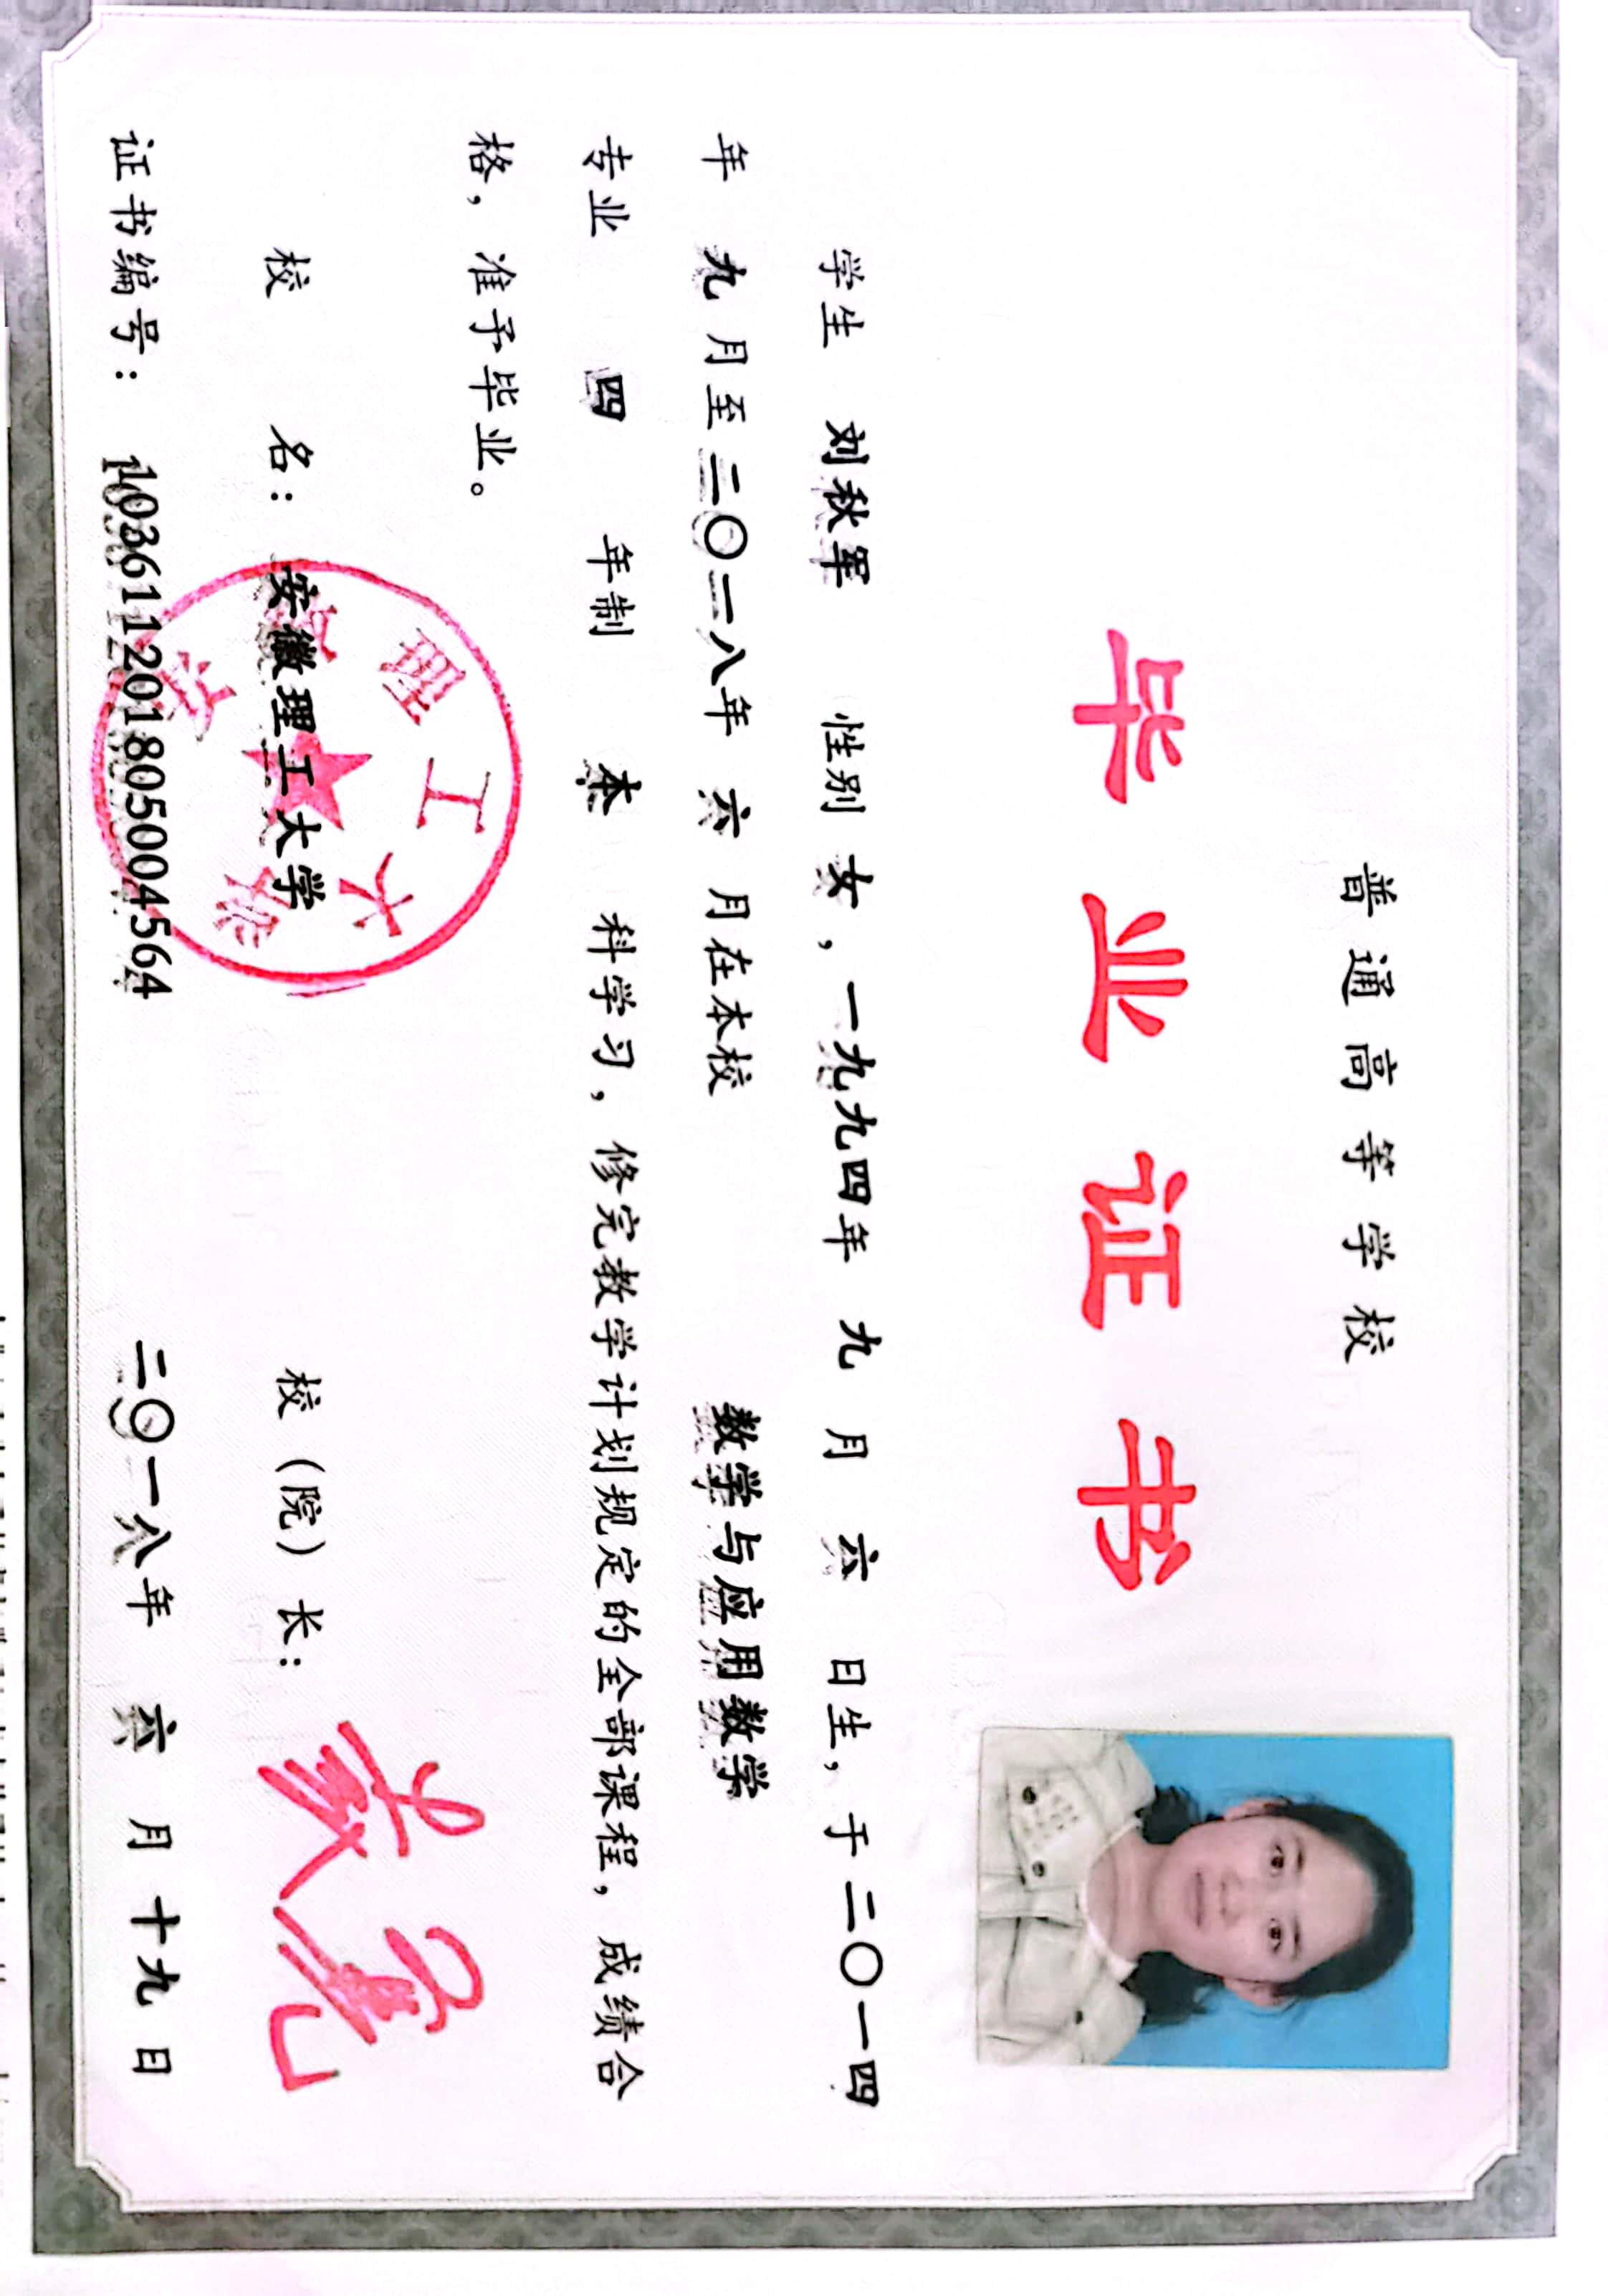 普通高等学校
毕业证书
学生 刘秋军 性别 女，一九九四年 九 月 六 日生，于二〇一四
年 九 月至二〇一八年 六 月在本校 数学与应用数学
专业 四 年制 本 科学习，修完教学计划规定的全部课程，成绩合
格，准予毕业。
校 名：安徽理工大学 校（院）长：
证书编号：103611201805004564 二〇一八年 六 月 十九 日